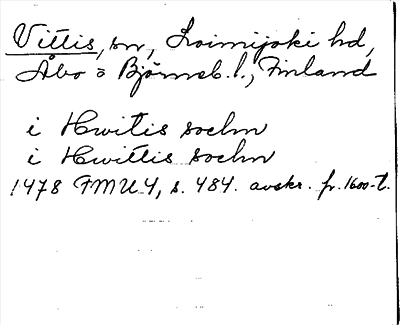 Vittis, sn, Loimijoki hd,
Åbo o Björneb. l., Finland
i Hwitis sochn
i Hwittis sochn
1478 FMU 4, s. 484. avskr. fr. 1600-t.